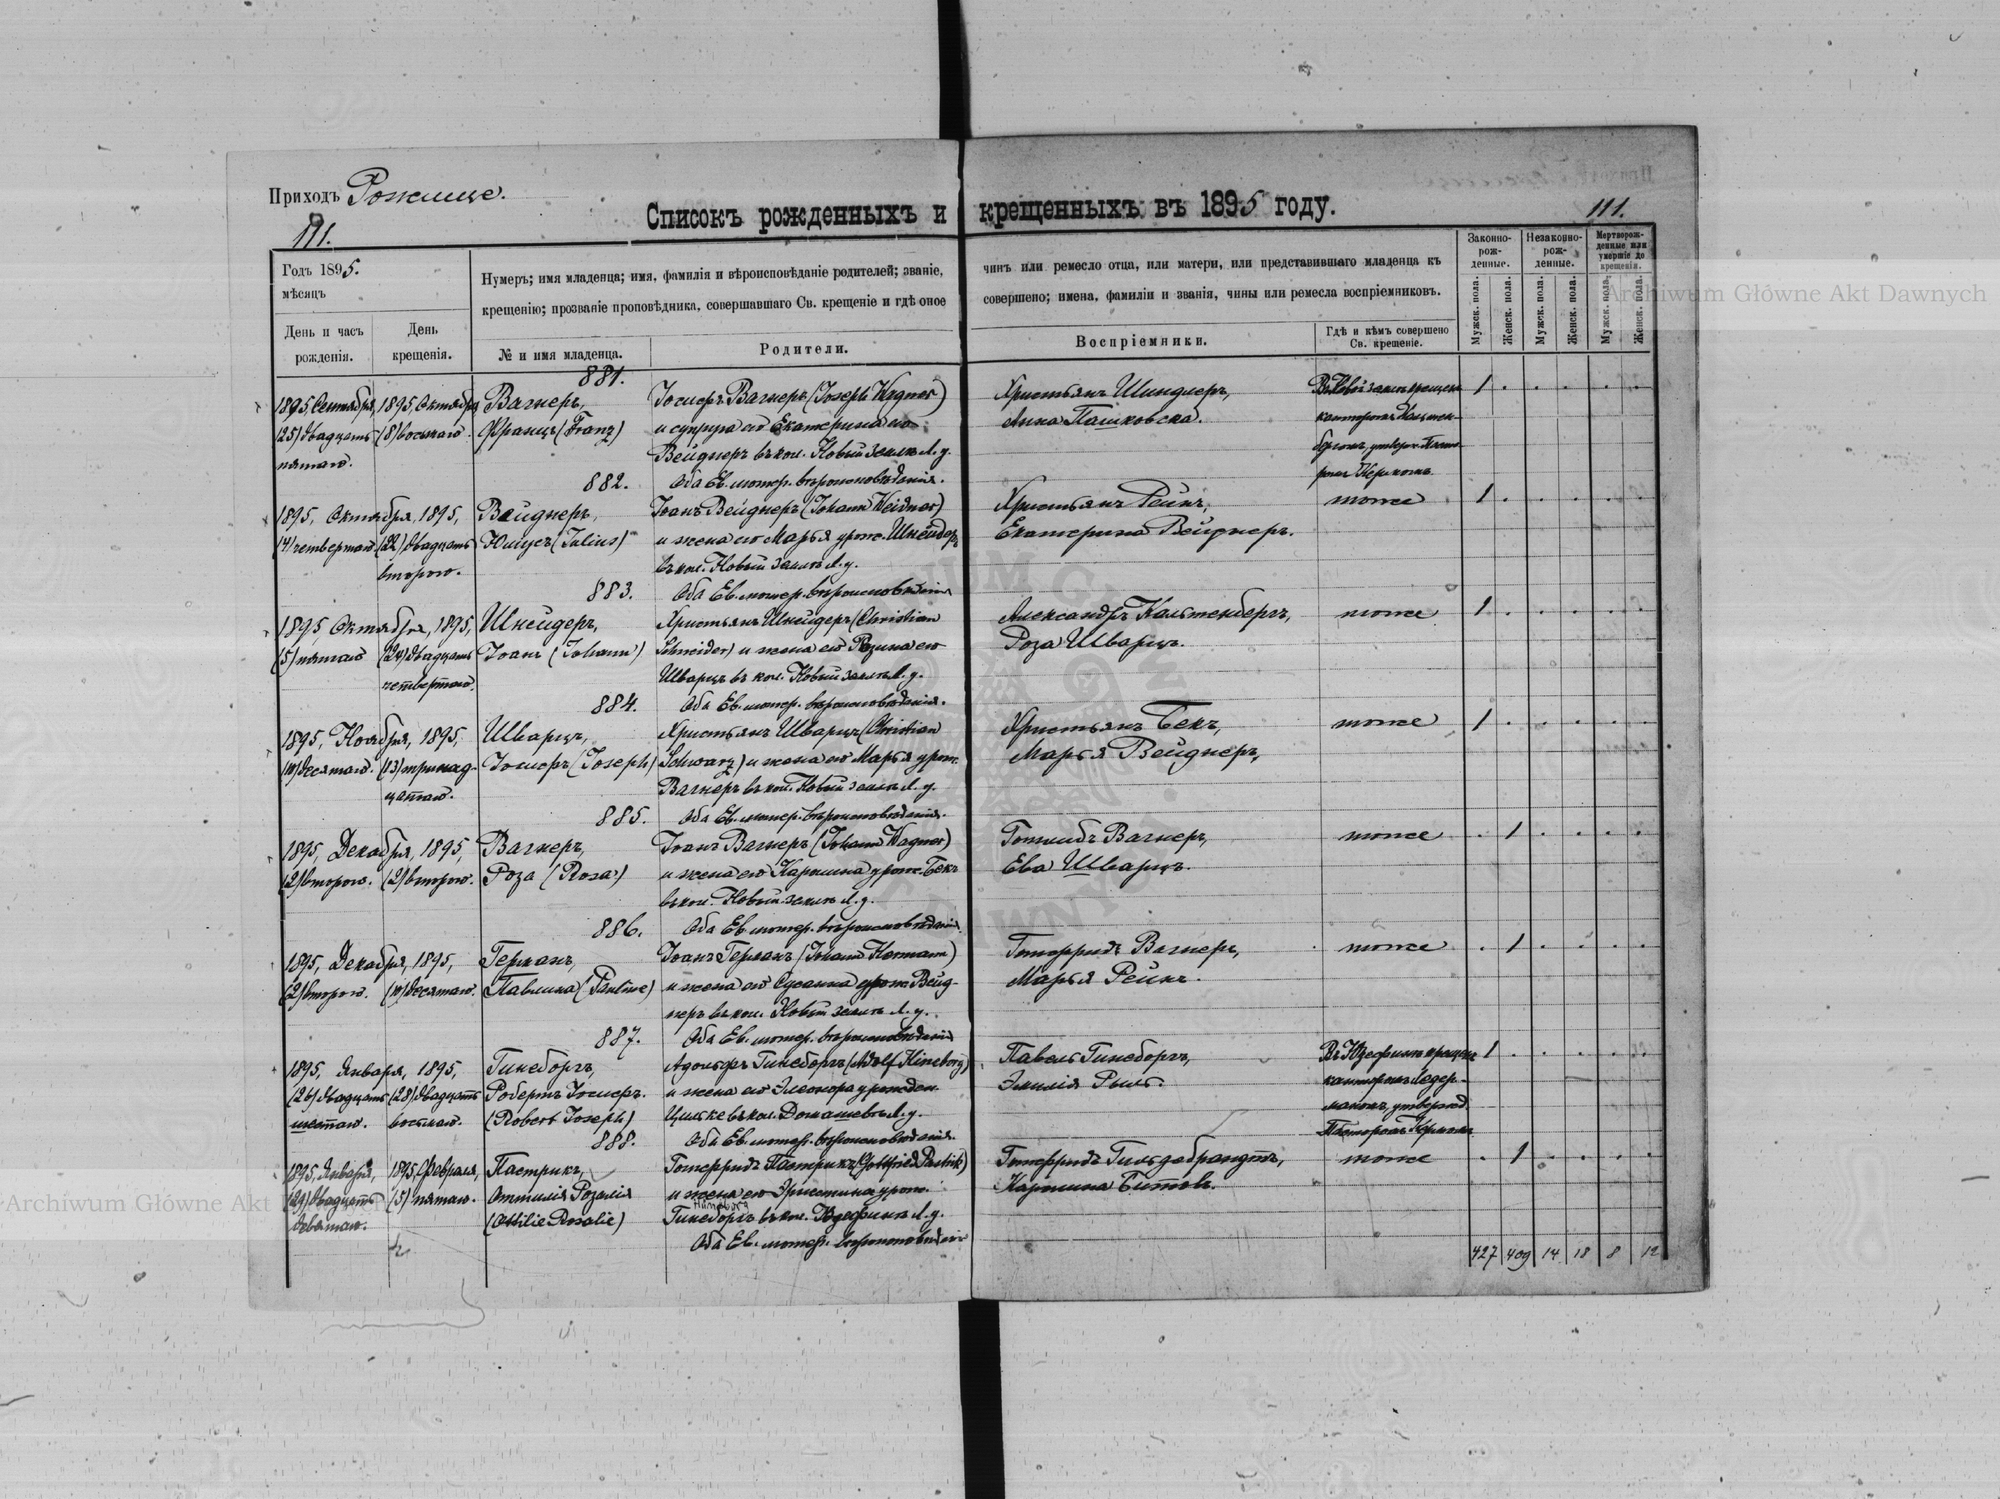 Приходъ Рожище.
Списокъ рожденныхъ и крещенныхъ въ 1895 году.
111.
Годъ 1895.
мѣсяцъ
День и часъ
рожденія.
День
крещенія.
Нумеръ; имя младенца; имя, фамилія и вѣроисповѣданіе родителей; званіе,
чинъ или ремесло отца, или матери, или представившаго младенца къ
крещенію; прозваніе проповѣдника, совершавшаго Св. крещеніе и гдѣ оное
совершено; имена, фамиліи и званія, чины или ремесла воспріемниковъ.
№ и имя младенца.
Родители.
Воспріемники.
Гдѣ и кѣмъ совершено
Св. крещеніе.
Законно-
рож-
денные.
Незаконно-
рож-
денные.
Мертворож-
денные или
умершіе до
крещенія.
Мужск. пола.
Женск. пола.
Мужск. пола.
Женск. пола.
Мужск. пола.
Женск. пола.
881.
1895, Сентября,
(25) двадцать
пятаго.
1895, Октября
(8) восьмаго.
Вагнеръ,
Францъ (Franz)
Іосифъ Вагнеръ (Joseph Wagner)
и супруга его Екатерина
Вейднеръ въ кол. Новый
Оба Ев. лютер. вѣроисповѣданія.
Христьянъ Шиндлеръ,
Анна Пашковска.
1
882.
1895, Октября, 1895,
(4) четвертаго (22) двадцать
второго.
Вейднеръ,
Юлиусъ (Julius)
Іоанъ Вейднеръ (Johann Weidner)
и жена его Марья урож. Шнейдеръ
въ кол. Новый
Христьянъ Рейнъ,
Екатерина Вейднеръ.
тоже
1
883.
Оба Ев. лютер. вѣроисповѣданія
1895 Октября, 1895,
(5) пятаго (24) двадцать
четвертаго.
Шнейдеръ,
Іоанъ (Johann)
Христьянъ Шнейдеръ (Christian
Schneider) и жена его Розина
Шварцъ въ кол. Новый
Александръ Кальтенбергъ,
Роза Шварцъ.
тоже
1
884.
Оба Ев. лютер. вѣроисповѣданія.
1895, Ноября, 1895,
(10) десятаго. (13) тринад-
цатаго.
Шварцъ,
Іосифъ (Joseph)
Христьянъ Шварцъ (Christian
Schwarz) и жена его Марья урож.
Вагнеръ въ кол. Новый
Христьянъ Бекъ,
Марья Вейднеръ,
тоже
1
885.
Оба Ев. лютер. вѣроисповѣданія.
1895, Декабря, 1895,
(2) второго. (2) второго.
Вагнеръ,
Роза (Rosa)
Іоанъ Вагнеръ (Johann Wagner)
и жена его Каролина урож. Бекъ
въ кол. Новый
Готлибъ Вагнеръ,
Ева Шварцъ.
тоже
1
886.
Оба Ев. лютер. вѣроисповѣданія.
1895, Декабря, 1895,
(2) второго. (10) десятаго.
Германъ,
Павлина (Pauline)
Іоанъ Германъ (Johann Hermann)
и жена его Сусанна урож. Вейд-
неръ въ кол. Новый
Готфридъ Вагнеръ,
Марья Рейнъ.
тоже
1
887.
Оба Ев. лютер. вѣроисповѣданія
1895, Января, 1895,
(26) двадцать (28) двадцать
шестаго. восьмаго.
Гинеборгъ,
Робертъ Іосифъ.
(Robert Joseph)
Адольфъ Гинеборгъ (Adolf Hineborg)
и жена его Элеонора урожден.
въ кол.
Павелъ Гинеборгъ,
Эмилія
1
888.
Оба Ев. лютер. вѣроисповѣданія.
1895, Января, 1895, Февраля,
(29) двадцать (5) пятаго.
девятаго.
Пастрикъ,
Оттилія Розалія
(Ottilie Rosalie)
Готфридъ Пастрикъ (Gottfried Pastrik)
и жена его Христина урож.
Гинеборгъ въ кол. Юзефинъ
Оба Ев. лютер. вѣроисповѣданія
Готфридъ Гильдебрандтъ,
Каролина
тоже
1
427 409 14 18 8 12
Archiwum Główne Akt Dawnych
Archiwum Główne Akt Dawnych